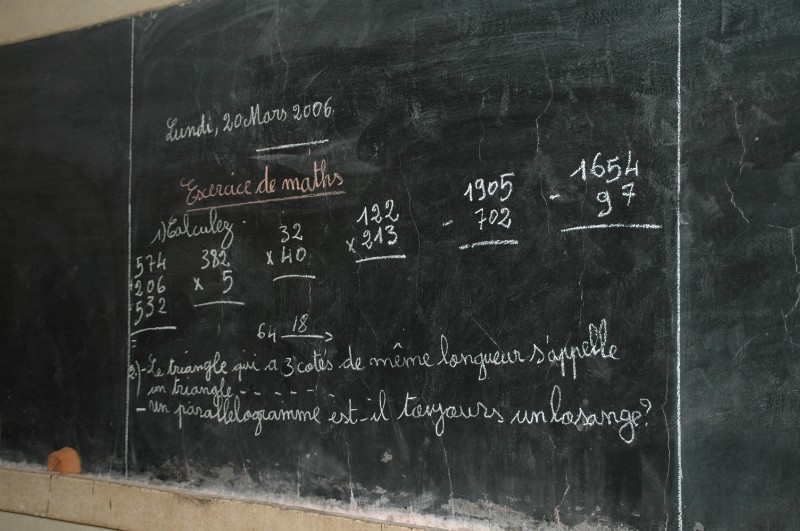 Lundi, 20 Mars 2006
Exercice de maths
1) Calculez
574
+206
532
=
382
x 5
32
x 40
122
x 213
1905
- 702
1654
- 97
64 18
2)- Le triangle qui a 3 cotés de même longueur s'appelle
un triangle - - - - - -
- un parallélogramme est-il toujours un losange?